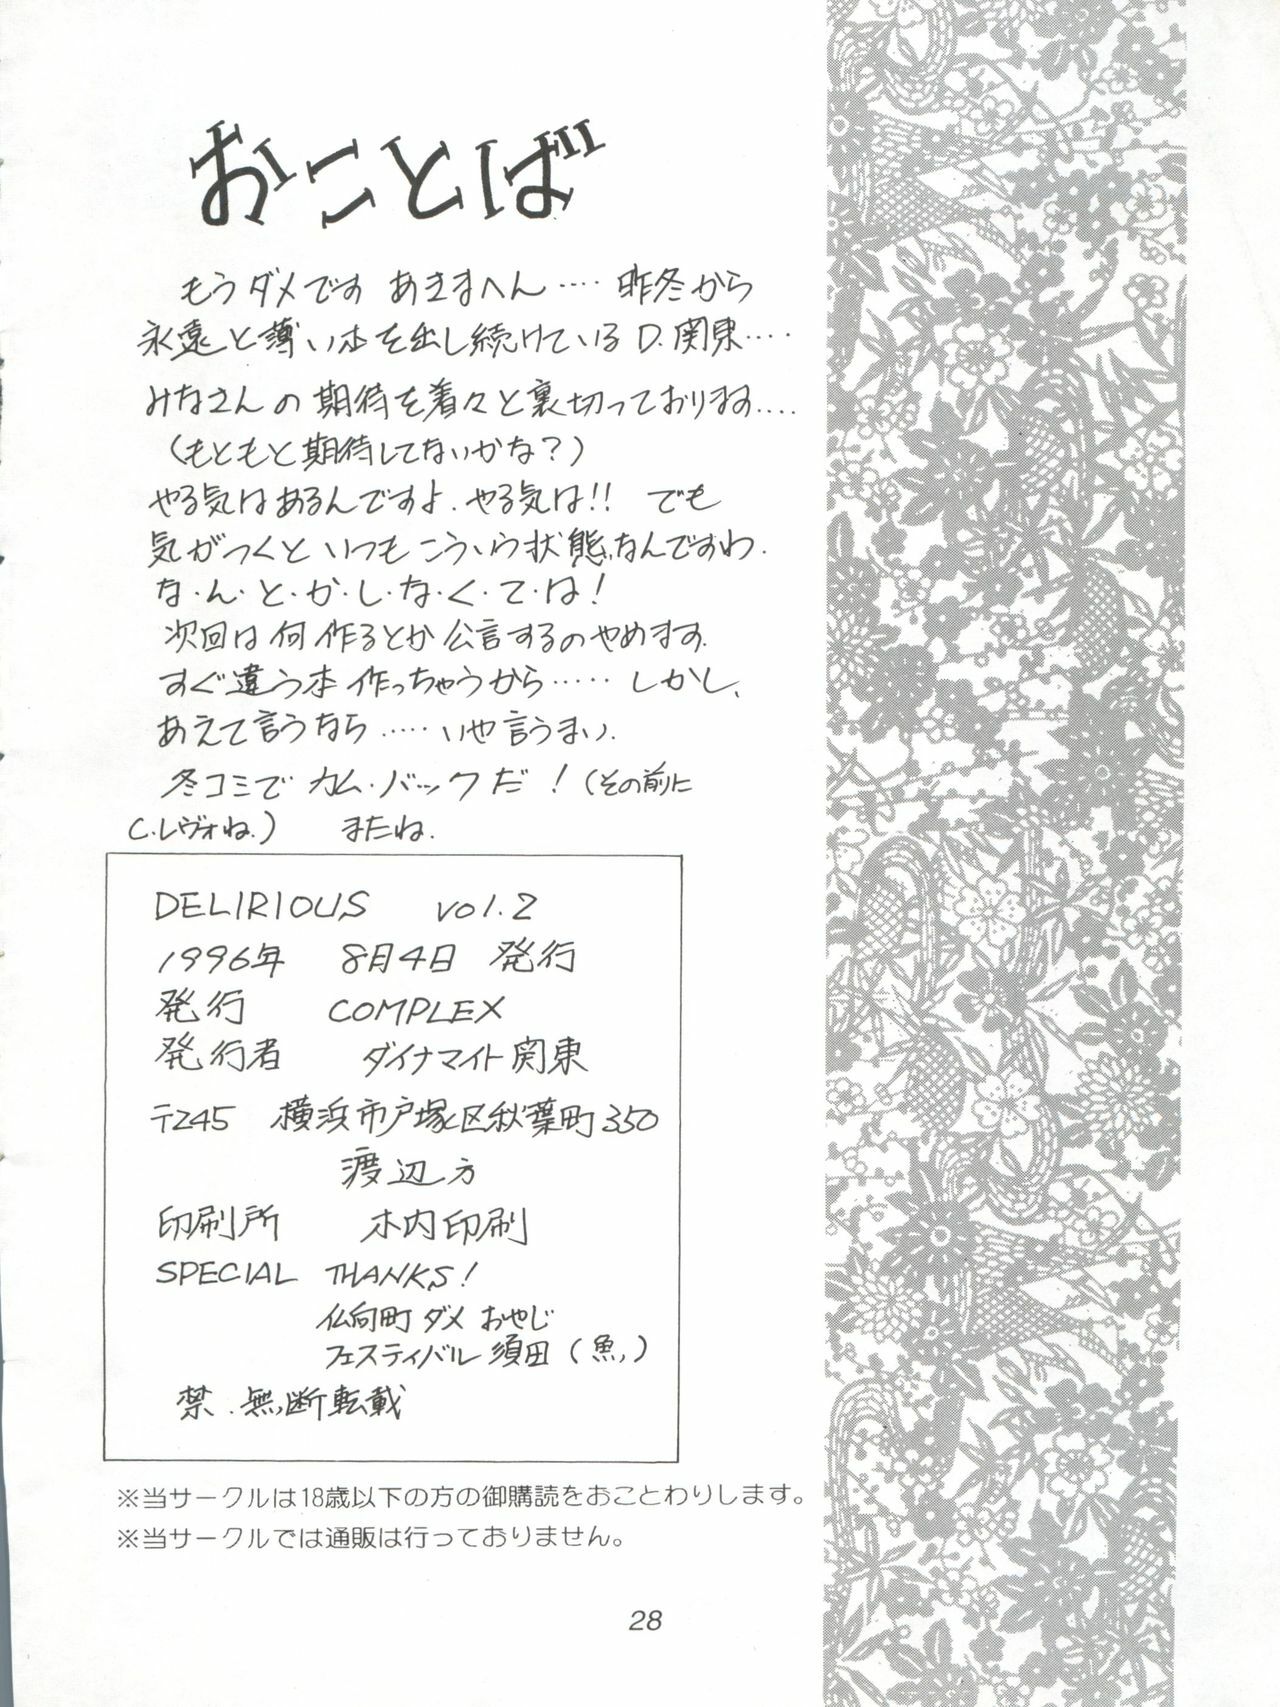 おことば
もうダメです あきまへん‥‥ 昨冬から
永遠と薄い本を出し続けているD.関東‥‥
みなさんの期待を着々と裏切っております‥‥
(もともと期待してないかな?)
やる気はあるんですよ.やる気は!! でも
気がつくといつもこういう状態なんですわ.
な・ん・と・か・し・な・く・て・は!
次回は何作るとか公言するのやめます.
すぐ違う本作っちゃうから‥‥‥ しかし、
あえて言うなら‥‥‥いや言うまい.
冬コミでカム・バックだ!(その前に
C.レヴォね.) またね.
DELIRIOUS vol.2
1996年 8月4日 発行
発行 COMPLEX
発行者 ダイナマイト関東
〒245 横浜市戸塚区秋葉町350
渡辺方
印刷所 木内印刷
SPECIAL THANKS!
仏向町ダメおやじ
フェスティバル須田(魚,)
禁.無断転載
※当サークルは18歳以下の方の御購読をおことわりします。
※当サークルでは通販は行っておりません。
28